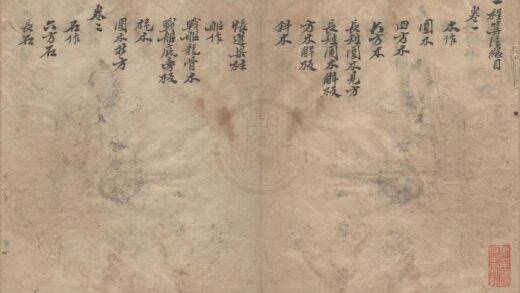 工程筭法總目
卷一
木作
圓木
四方木
六方木
長短圓木見方
長短圓木解板
方木解板
斜木
邊梁柱
船作
戰船龍骨木
戰船底旁板
桅木
圓木 方
卷二
石作
六方石
長石